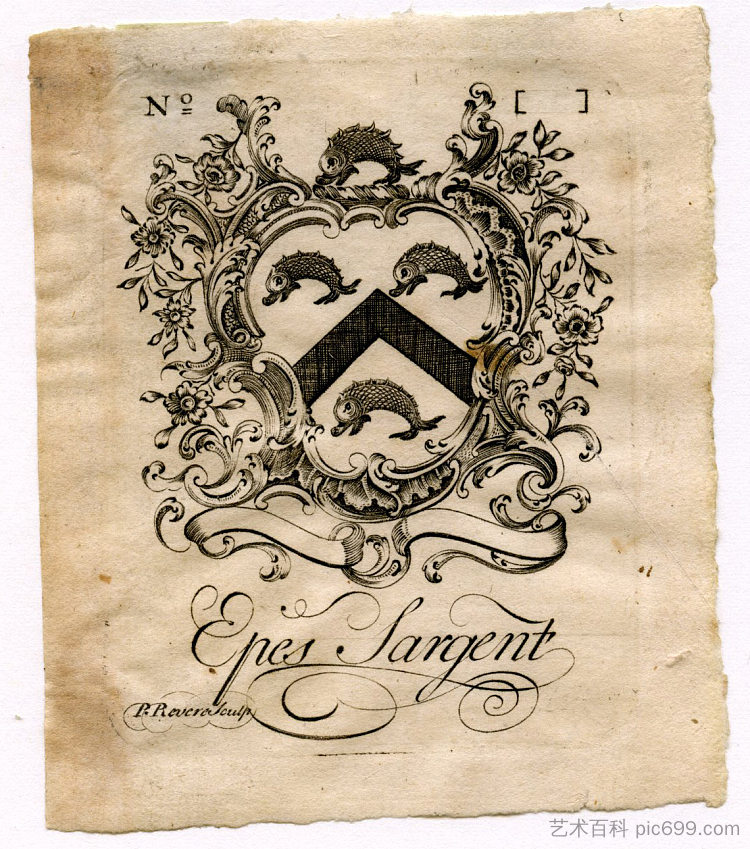 Nº [ ]
Epes Sargent
P. Revere Sculp
艺术百科 pic699.com